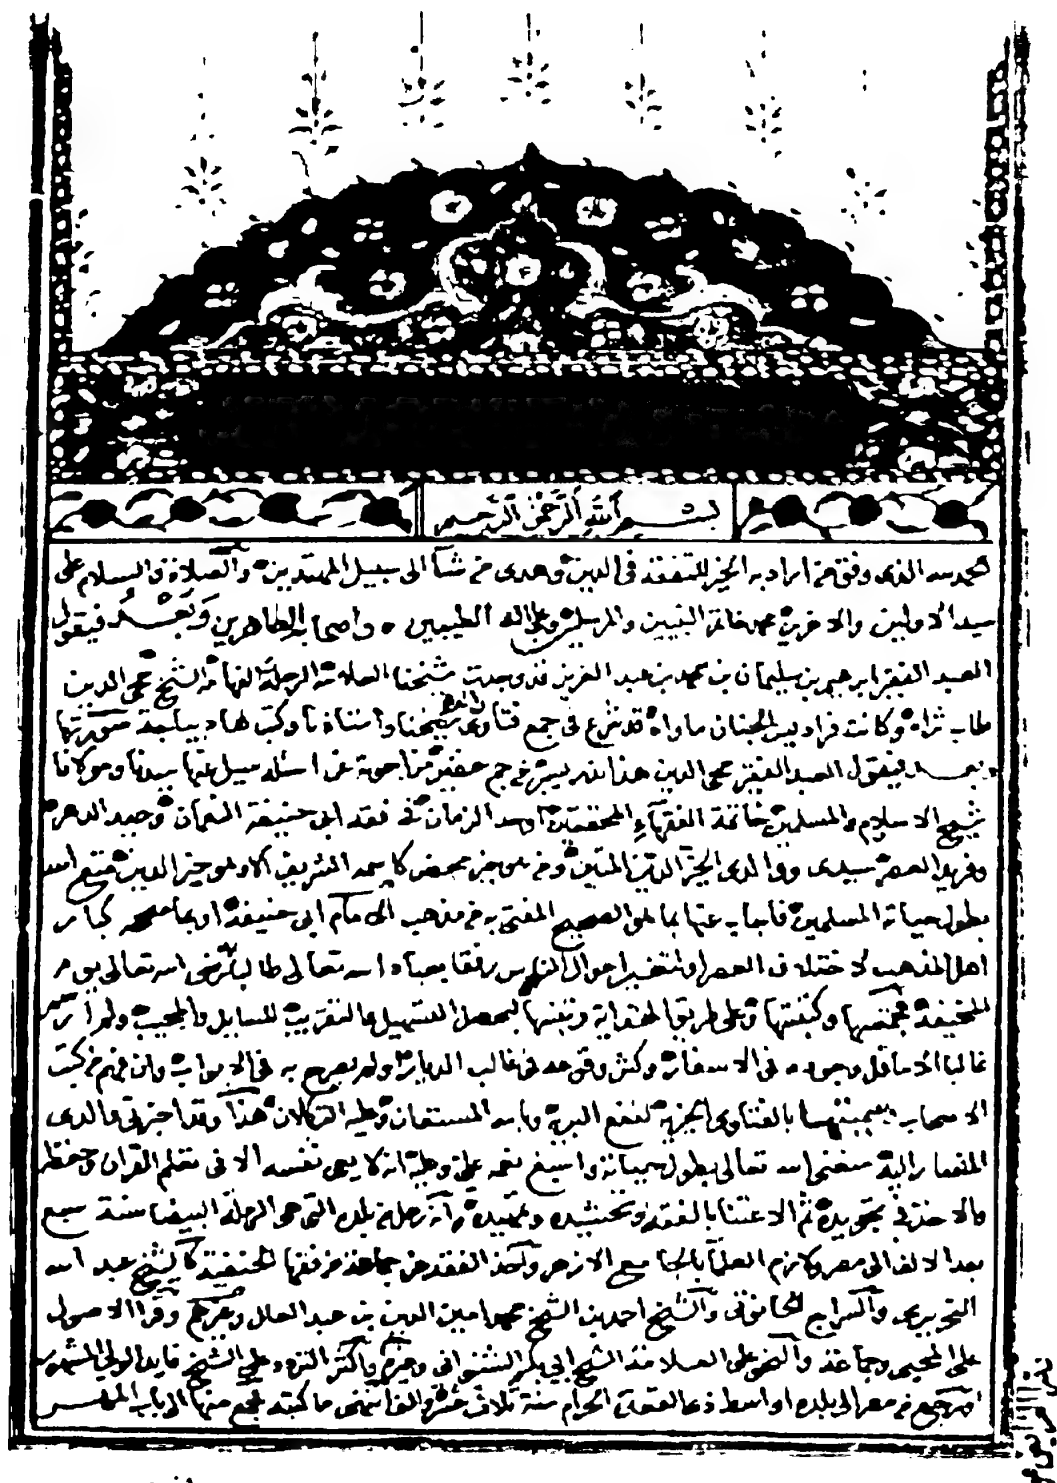 بسم الله الرحمن الرحيم
الحمد لله الذى وفق من اراد به الخير للتفقه فى الدين وهدى من شآ الى سبيل المهتدين والصلاة والسلام على
سيد الاولين والاخرين محمد خاتم النبيين والمرسلين وعلى اله الطيبين واصحابه الطاهرين وبعد فيقول
العبد الفقير ابراهيم بن سليمان بن محمد بن عبد العزيز قد وجدت شيخنا العلامة الرحلة الفهامة الشيخ محى الدين
طاب ثراه وكانت فراديس الجنان ماواه قد شرع فى جمع فتاوى والده شيخنا واستاذنا وكتب لها ديباجة صورتها
وبعد فيقول العبد الفقير محى الدين هذا نذر يسير فى جم من اجوبة عن اسئله سيل عنها سيدنا ومولانا
شيخ الاسلام والمسلمين خاتمة الفقهآء المحققين اوحد الزمان فى فقه ابى حنيفة النعمان وحيد الدهر
وفريد العصر سيدى ووالدى الدين المتين ومن هو خير محض كاسمه الشريف الا وهو خير الدين متع الله
بطول حياته المسلمين فاجاب عنها بما هو الصحيح المفتى به من مذهب الامام ابى حنيفة او بما صححه كبار
اهل المذهب لاختلاف العصر او لتغير احوال الناس رفقا بعباد الله تعالى طالبا رضى الله تعالى يوم
وكتبتها وعلى طريق الهداية رتبتها ليحصل التسهيل والتقريب للسايل والمجيب ولم ار
غالبا الا ما قل وجوده فى الاسفار وكثر وقوعه فى غالب الديار ولم يصرح به فى الابواب وان فهم من كتب
الاصحاب وسميتها بالفتاوى الخيرية لنفع البرية وبالله المستعان وعليه التكلان هذا وقد اخبرنى والدى
المشار اليه متعنى الله تعالى بطول حياته واسبغ نعمه على وعليه انه لا يعى نفسه الا فى تعلم القران وحفظه
والاخذ فى تجويده ثم الاعتنا بالفقه وانه رحل من بلده التى هى الرملة البيضا سنة سبع
بعد الالف الى مصر ولازم العلمآ بالجامع الازهر واخذ الفقه عن جماعة من فقها الحنفية كالشيخ عبد الله
النحريرى والسراج الحانوتى والشيخ احمد بن الشيخ محمد امين الدين بن عبد العال وغيرهم وقرا الاصول
على المحبى وجماعة والنحو على العلامة الشيخ ابى بكر الشنوانى وغيره واكثر التردد على الشيخ فايد الولى المشهور
ورجع من مصر الى بلده اواسط ذى القعدة الحرام سنة ثلاث عشر والف انتهى ما كتبه جمع منها الى باب المهر